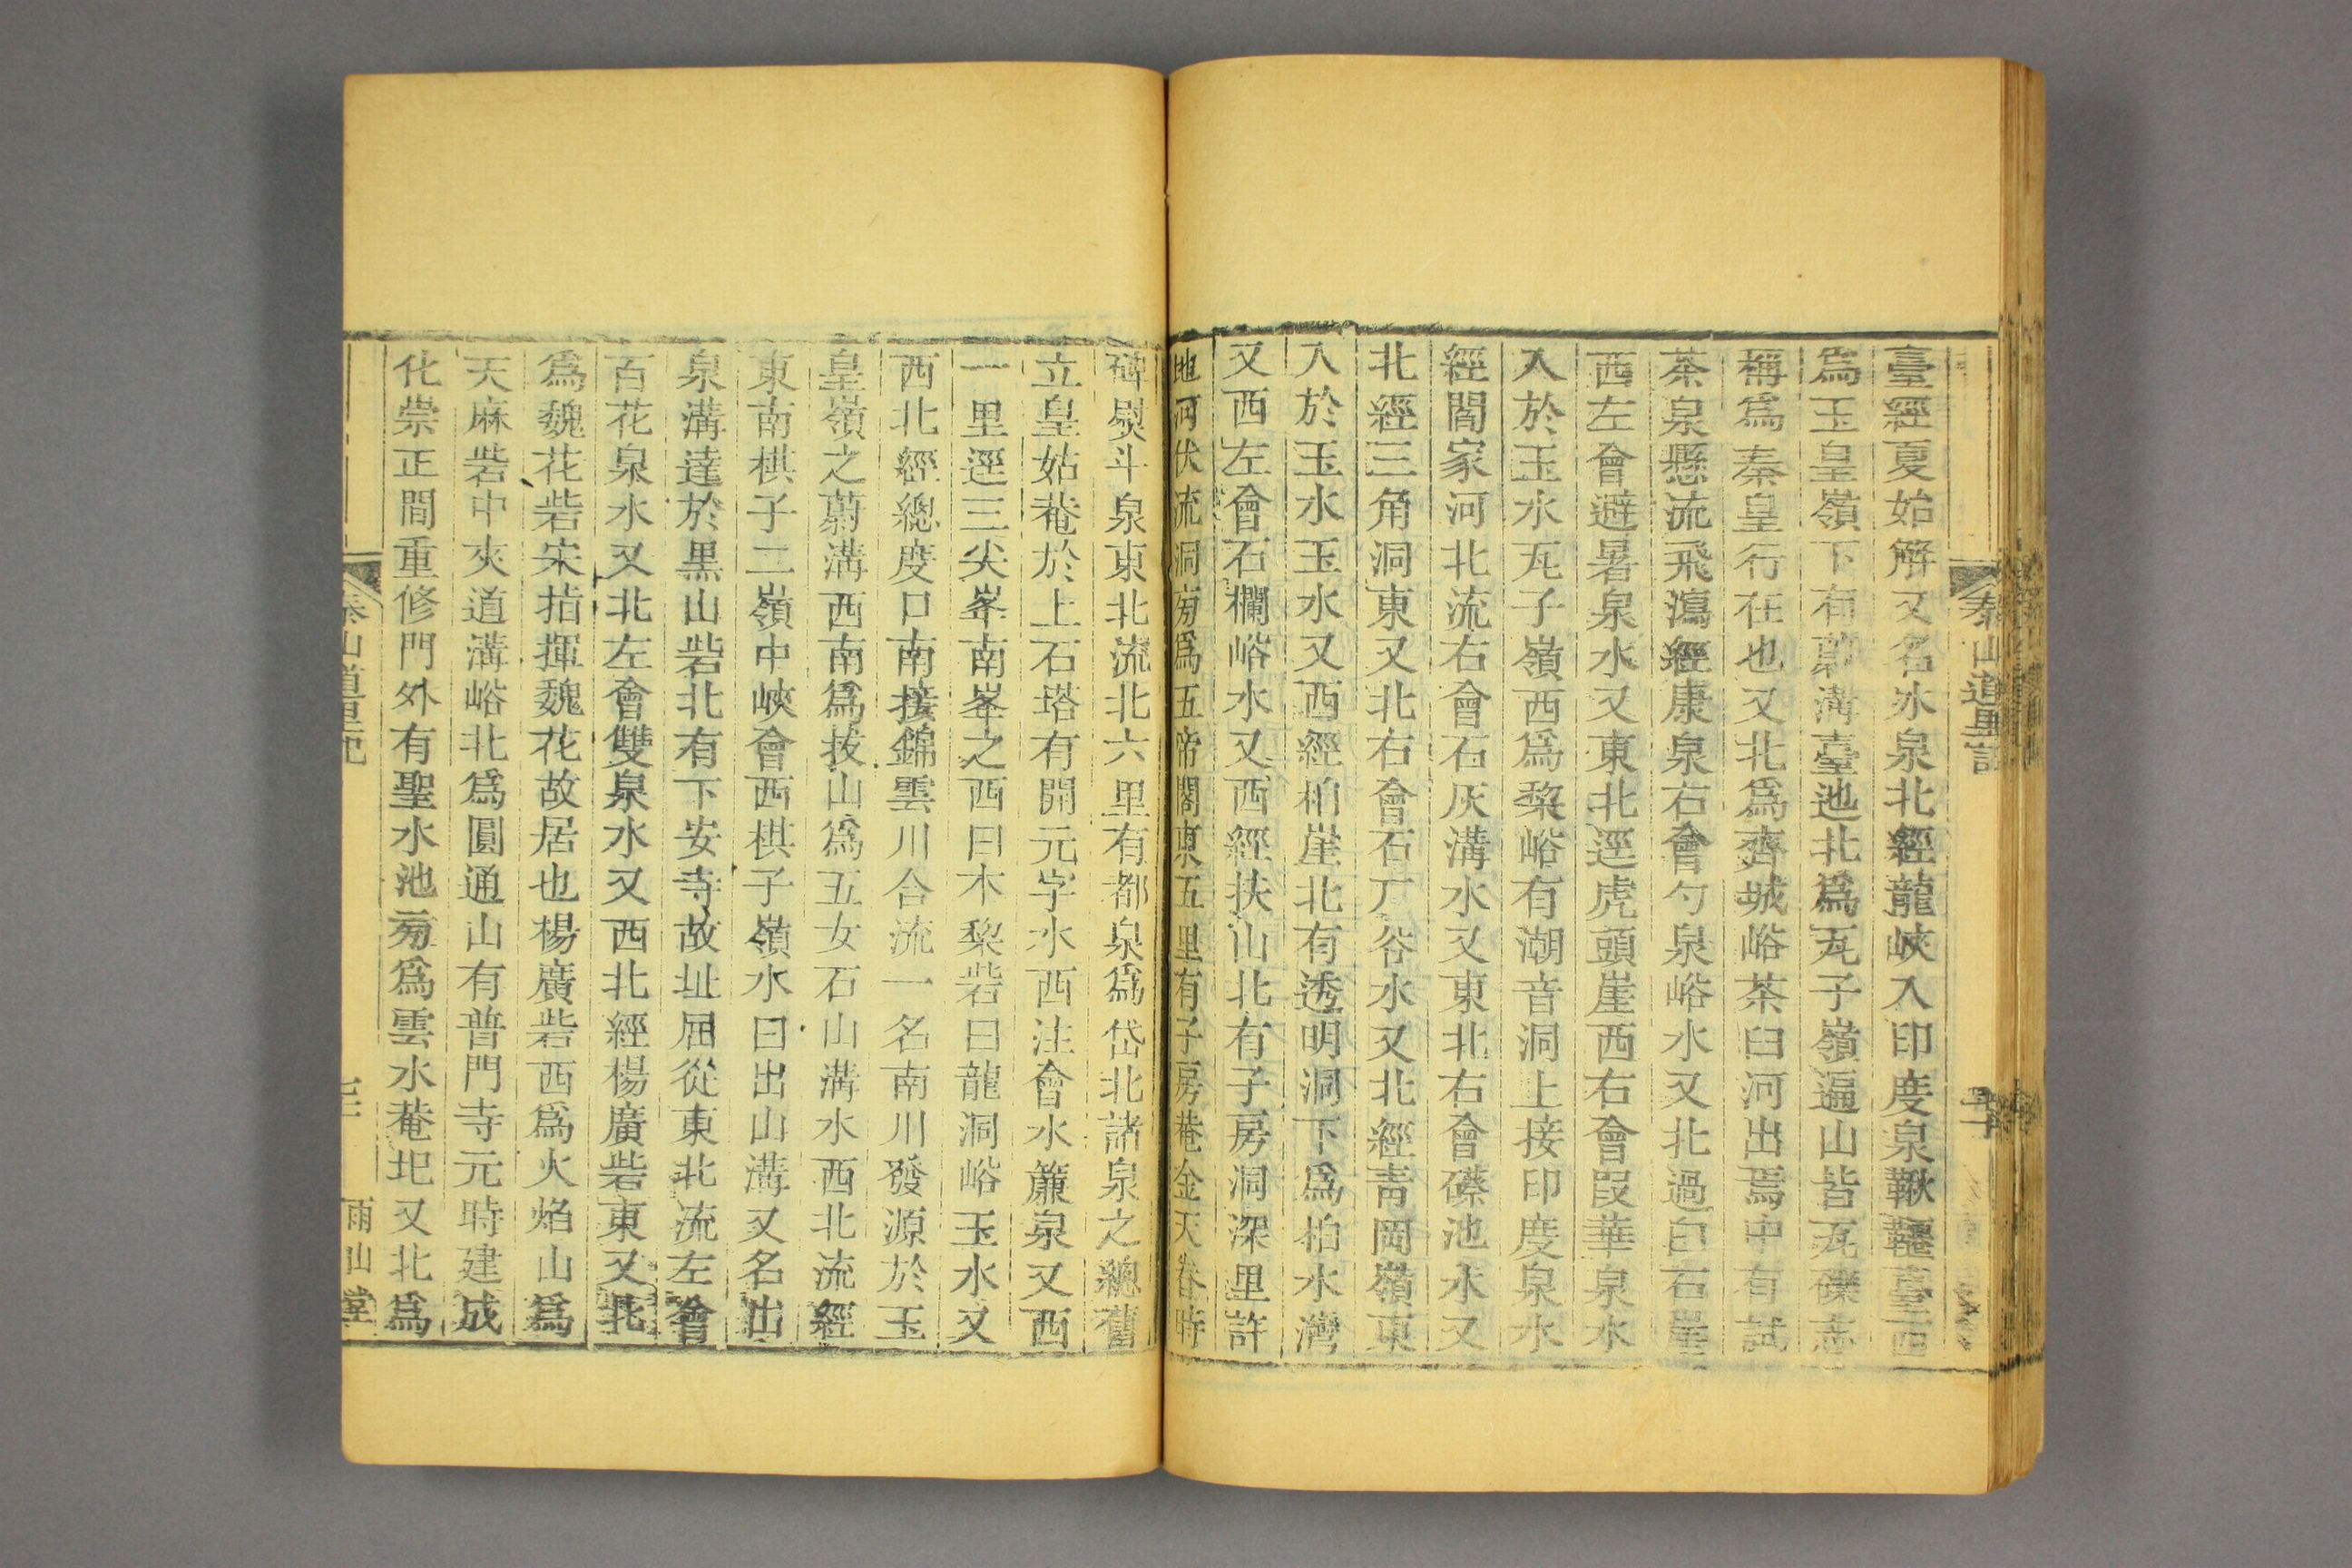 泰山道里記
臺經夏始解又名冰泉北經龍峽入印度泉鞦韆臺西
爲玉皇嶺下有蔚溝臺池北爲瓦子嶺逼山皆瓦礫志
稱爲秦皇行在也又北爲齊城峪茶臼河出焉中有試
茶泉懸流飛瀉經康泉右會勺泉峪水又北過白石崖
西左會避暑泉水又東北逕虎頭崖西右會叚華泉水
入於玉水瓦子嶺西爲棃峪有潮音洞上接印度泉水
經閻家河北流右會石灰溝水又東北右會礤池水又
北經三角洞東又北右會石丁谷水又北經靑岡嶺東
入於玉水玉水又西經柏崖北有透明洞下爲柏水灣
又西左會石欄峪水又西經扶山北有子房洞深里許
地河伏流洞旁爲五帝閣東五里有子房菴金天眷時
碑熨斗泉東北流北六里有都泉爲岱北諸泉之總舊
立皇姑菴於上石塔有開元字水西注會水簾泉又西
一里逕三尖峯南峯之西曰木棃砦曰龍洞峪玉水又
西北經總度口南接錦雲川合流一名南川發源於玉
皇嶺之蔚溝西南爲拔山爲五女石山溝水西北流經
東南棋子二嶺中峽會西棋子嶺水曰出山溝又名出
泉溝達於黒山砦北有下安寺故址屈從東北流左會
百花泉水又北左會雙泉水又西北經楊廣砦東又北
爲魏花砦宋指揮魏花故居也楊廣砦西爲火焰山爲
天麻砦中夾道溝峪北爲圓通山有普門寺元時建成
化崇正間重修門外有聖水池旁爲雲水菴圯又北爲
泰山道里記
雨山堂